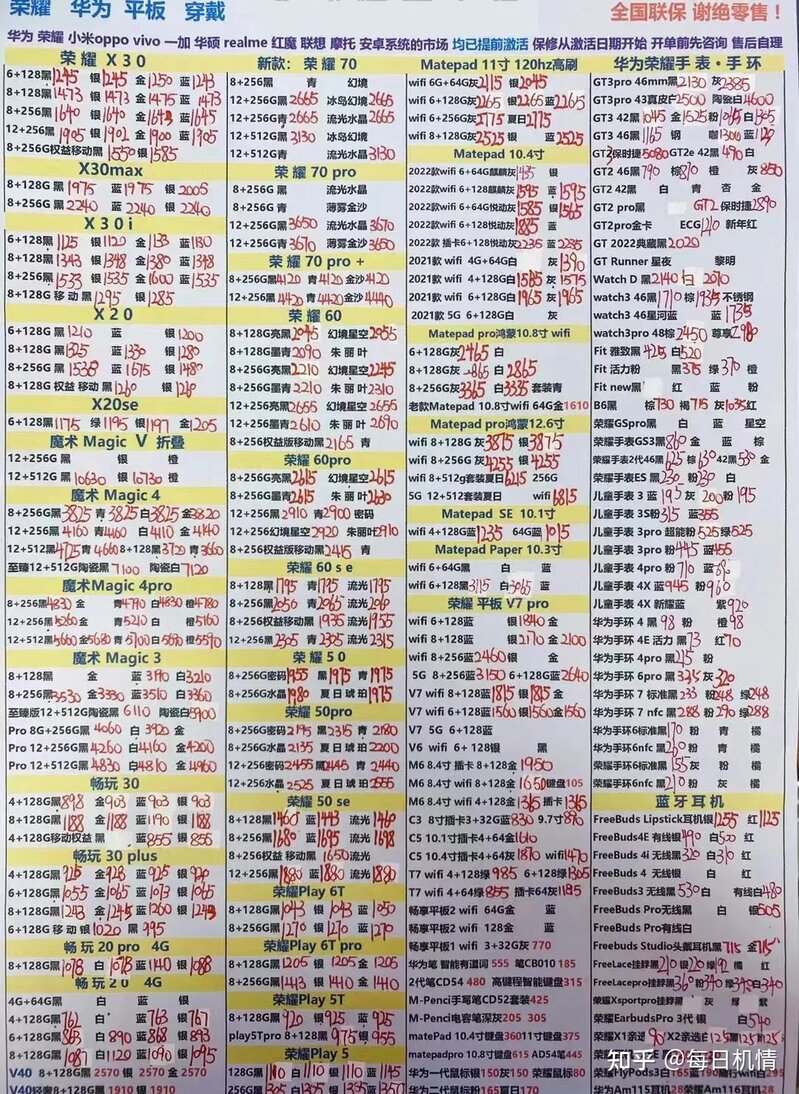 荣耀 华为 平板 穿戴
全国联保 谢绝零售！
华为 荣耀 小米oppo vivo 一加 华硕 realme 红魔 联想 摩托 安卓系统的市场 均已提前激活 保修从激活日期开始 开单前先咨询 售后自理
荣耀 X30
6+128黑1245 银1245 金1250 蓝1243
8+128黑1473 银1473 金1475 蓝1473
8+256黑1640 银1640 金1643 蓝1645
12+256黑1905 银1902 金1900 蓝1905
8+256G权益移动黑1550 银1585
X30max
8+128G黑1975 蓝1975 银2005
8+256G黑2240 蓝2240 银2240
X30i
6+128黑1125 银1120 金1133 蓝1130
8+128黑1343 银1348 金1380 蓝1348
8+256黑1533 银1535 金1600 蓝1535
8+128G 移动 黑1295 银1285
X20
6+128G 黑1210 蓝 银1200
8+128G 黑1325 蓝1330 银1280
8+256G 黑1535 蓝1675 银1480
8+128G 权益 移动 黑1260 银1210
X20se
6+128G 黑1175 绿1195 银1197 金1205
魔术 Magic V 折叠
12+256G 黑 银 橙
12+512G 黑10630 银10730 橙
魔术 Magic 4
8+256G黑3825 青3825 白3825 金3820
12+256黑4160 青4160 白4110 金4140
12+512黑4725 青4660 8+128黑3720 青3660
至臻12+512G陶瓷黑7100 陶瓷白7120
魔术Magic 4pro
8+256黑4830 金 青4790 白4830 橙4780
12+256黑5260 金 青5210 白 橙5160
12+512黑5660 金5680 青5700 白5650 橙5590
魔术 Magic 3
8+128G黑 金 蓝3190 白3210
8+256G黑3530 金3330 蓝3510 白3360
至臻版12+512G陶瓷黑6110 陶瓷白5900
Pro 8G+256G黑4060 白3920 金
Pro 12+256G黑4260 白4160 金4200
Pro 12+512G黑4830 白4810 金4960
畅玩 30
4+128G黑898 金903 蓝903 银903
8+128G黑1188 金1188 蓝1190 银1188
4+128G移动权益 黑 蓝855 银855
畅玩 30 plus
4+128G黑925 金928 蓝925 银920
6+128G黑1055 金1065 蓝1073 银1065
8+128G黑1243 金1245 蓝1260 银1243
6+128G移动 银1020 黑995
畅玩 20 pro 4G
8+128G黑1078 白1078 蓝1140 银1088
畅玩 20 4G
4G+64G黑 白 蓝 银
4+128G黑762 白 蓝763 银767
6+128G黑863 白890 蓝868 银893
8+128G黑1087 白1120 蓝1090 银1095
V40 8+128G黑2570 银2570 金2570
V40轻奢8+128G黑1910 银1910
新款：荣耀 70
8+256G黑 青 幻境
8+256G黑2665 冰岛幻境2665
12+256G青2665 流光水晶2665
12+512G黑3130 冰岛幻境
12+512G青 流光水晶3130
荣耀 70 pro
8+256G黑 流光水晶
8+256G青 薄雾金沙
12+256G黑3650 流光水晶3670
12+256G青3670 薄雾金沙3650
荣耀 70 pro +
8+256G黑4120 青4120 金沙4120
12+256黑4420 青4420 金沙4440
荣耀 60
8+128G亮黑2045 幻境星空2055
8+128G墨青2090 朱丽叶
8+256G亮黑2210 幻境星空2245
8+256G墨青2210 朱丽叶2310
12+256亮黑2655 幻境星空2655
12+256墨青2610 朱丽叶2690
8+256权益版移动黑2165 青
荣耀 60pro
8+256G亮黑2615 幻境星空2615
8+256G墨青2615 朱丽叶2630
12+256黑2910 青2900 密码
12+256幻境星空2920 朱丽叶2910
8+256权益版移动黑2415 青
荣耀 60 se
8+128黑1795 青1795 流光1795
8+256黑2050 青2065 流光2060
8+256移动权益黑1935 流光1955
12+256黑2305 青2325 流光2315
荣耀 50
8+256G密码1955 黑1975 青1975
8+256G水晶1980 夏日琥珀1975
荣耀 50pro
8+256G密码2195 黑2315 青2180
8+256G水晶2135 夏日琥珀2200
12+256密码2455 黑2445 青2440
12+256G水晶2525 夏日琥珀2555
荣耀 50 se
8+128黑1460 蓝1443 流光1460
8+256黑1680 蓝1695 流光1698
8+256权益 移动黑1650流光
12+256黑1880 蓝1880 流光1880
荣耀Play 6T
8+128G黑1043 银1043 蓝1050
8+256G黑1270 银1270 蓝1270
荣耀Play 6T pro
8+128G黑1205 银1205 金1205
8+256G黑1443 银1410 金1410
荣耀Play 5T
8+128G黑920 银925 蓝925
play5Tpro 8+128黑975 银955
荣耀Play 5
128G黑1110 白1110 银1110 蓝1145
256G黑1305 白1305 银1335 蓝1350
Matepad 11寸 120hz高刷
wifi 6G+64G灰2115 银2045
wifi 6+128G灰2265 银2265 蓝2265
wifi 6+256G灰2775 夏日2775
wifi 8+128G灰2525 银 蓝2525
Matepad 10.4寸
2022款wifi 6+64G麒麟灰1485 银
2022款wifi 6+128麒麟灰1595 蓝1595
2022款wifi 6+64G悦动灰1585 银1565
2022款wifi 6+128悦动灰1885 蓝
2022款 插卡6+128悦动灰2235 蓝2235
2021款 wifi 4G+64G白 灰1390
2021款 wifi 4+128G白1585 灰1575
2021款 wifi 6+128G白1965 灰1965
2021款 5G 6+128G白 灰
Matepad pro鸿蒙10.8寸 wifi
6+128G灰2465 白
8+128G灰2865 白2865
8+256G灰3365 白3335 套装青
老款Matepad 10.8寸wifi 64G金1610
Matepad pro鸿蒙12.6寸
wifi 8+128G 灰3875 银3875
wifi 8+256G 灰4255 银4255
wifi 8+512g套装夏日6215 256G
5G 12+512套装夏日 wifi6815
Matepad SE 10.1寸
wifi 4+128G蓝1235 64G蓝1015
Matepad Paper 10.3寸
wifi 6+64G黑 白 蓝
wifi 6+128黑3115 白3065 蓝
荣耀 平板 V7 pro
wifi 6+128蓝 银1840 金
wifi 8+128蓝 银2170 金2100
wifi 8+256蓝2460 银 金
5G 8+256蓝3150 6+128G蓝2640
V7 wifi 8+128蓝1815 银1815 金
V7 wifi 6+128蓝1560 银1560金1560
V7 5G 6+128蓝
V6 wifi 6+128银 黑
M6 8.4寸 插卡 8+128金1950
M6 8.4寸 wifi 8+128金1650键盘105
M6 8.4寸 wifi 4+128金1365 插卡1365
C3 8寸插卡3+32G蓝830 9.7寸890
C5 10.1寸插卡4+64金1610
C5 10.4寸插卡4+64灰1870 wifi1470
T7 wifi 4+128绿985 6+128绿1305
T7 wifi 4+64绿855 插卡64灰1185
畅享平板2 wifi 64G金 蓝
畅享平板2 wifi 128金 蓝
畅享平板1 wifi 3+32G灰 770
华为笔 智能有道词 555 笔CB010 185
2代笔CD54 480 高键程智能键盘315
M-Penci手写笔CD52套装425
M-Penci电容笔深灰205 305
matePad 10.4寸键盘360 11寸键盘375
matepadpro 10.8寸键盘615 AD54笔445
华为一代鼠标银150灰150 荣耀鼠标80
华为二代鼠标 粉165夏日170
华为荣耀手 表·手环
GT3pro 46mm黑2130 灰2385
GT3pro 43真皮白2500 陶瓷白4600
GT3 42黑1045 金1525 粉1065 白1305
GT3 46黑1165 钢 咖1300 蓝120
GT3保时捷5080 GT2e 42黑490 白
GT2 46黑790 棕870 橙 灰850
GT2 42黑 白 杏 金
GT2 pro黑 GT2 保时捷2890
GT2pro金卡 ECG1210 新年红
GT 2022典藏黑2020
GT Runner 星夜 黎明
Watch D 黑2140 白2070
watch3 46黑1710 棕1935不锈钢
watch3 46星河蓝 蓝1735
watch3pro 48棕2450 尊享2980
Fit 雅致黑425 白520
Fit 活力粉 黑375 绿370 橙
Fit new黑 红 蓝 粉
B6黑 棕730 褐715 灰1035 红
荣耀GSpro黑 白 蓝 星空
荣耀手表GS3黑860 金 蓝 棕
荣耀手表2代46黑625 棕630 42黑530 金
荣耀手表ES 黑230 粉230 白
儿童手表 3 蓝195 灰200 粉195
儿童手表 3S粉315 蓝355
儿童手表 3pro 超能粉525 绿525
儿童手表 3pro 粉445 蓝455
儿童手表 4pro 粉710 蓝685
儿童手表 4X 蓝945 粉960
儿童手表 4X 新耀蓝 紫920
华为手环 4 黑98 粉 橙98
华为手环 4E 活力 黑73 红70
华为手环 4pro 黑215 粉
华为手环 6pro 黑335 灰320
华为手环 7 标准黑233 粉248 绿248
华为手环 7 nfc 黑288 粉290 绿288
华为手环6标准黑170 粉 青 橘
华为手环6nfc 黑260 粉 青 橘
荣耀手环6标准黑155 粉 灰 橘
荣耀手环6nfc 黑210 粉 灰 橘
蓝牙耳机
FreeBuds Lipstick耳机银1255 红1125
FreeBuds4E 有线银490 白500 红
FreeBuds 4i 无线黑320 白310 红
FreeBuds 4 无线黑 白 银
FreeBuds3 无线黑530白 有线白480
FreeBuds Pro无线黑 白 银505
FreeBuds Pro有线白
Freebuds Studio头戴耳机黑715 金715
FreeLace挂脖黑210 蓝220 绿192 橘 红
FreeLacepro挂脖黑360 粉340 绿345白340
荣耀Xsportpro挂脖黑 灰 绿 紫
荣耀EarbudsPro 3代 银 白540
荣耀X1亲选90 X2亲选白125黑125粉125
荣耀FlyPods3白 蓝190 wifi白295
华为Am115耳机28 荣耀Am116耳机28
知乎 @每日机情